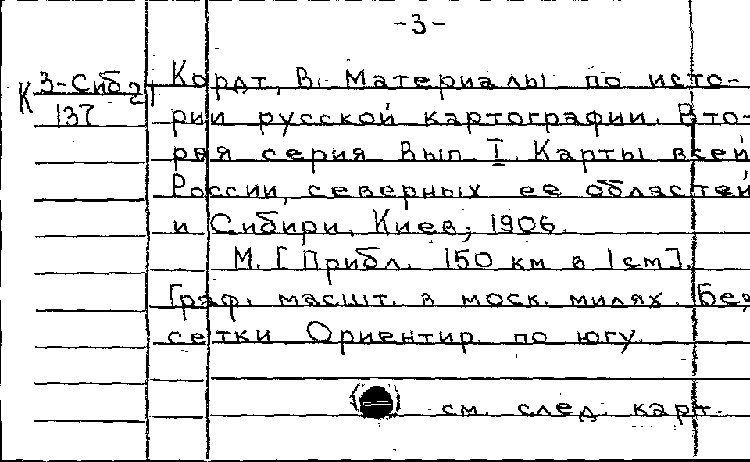 -3-
К 3-Сиб 21
137
Кордт, В. Материалы по исто-
рии русской картографии. Вто-
рая серия Вып. I. Карты всей
России, северных ее областей
и Сибири, Киев, 1906.
М. [Прибл. 150 км в 1 см].
Граф. масшт. в моск. милях. Без
сетки Ориентир. по югу
см. след. карт.